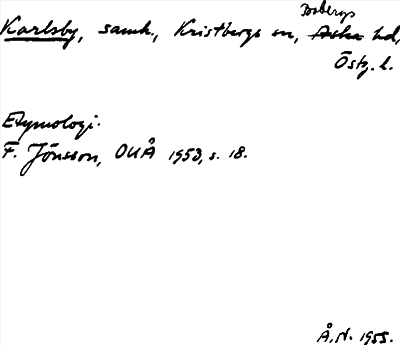 Bobergs
Karlsby, samh., Kristbergs sn, Aska hd,
Östg. l.
Etymologi.
F. Jönsson, OUÅ 1953, s. 18.
Å. N. 1955.